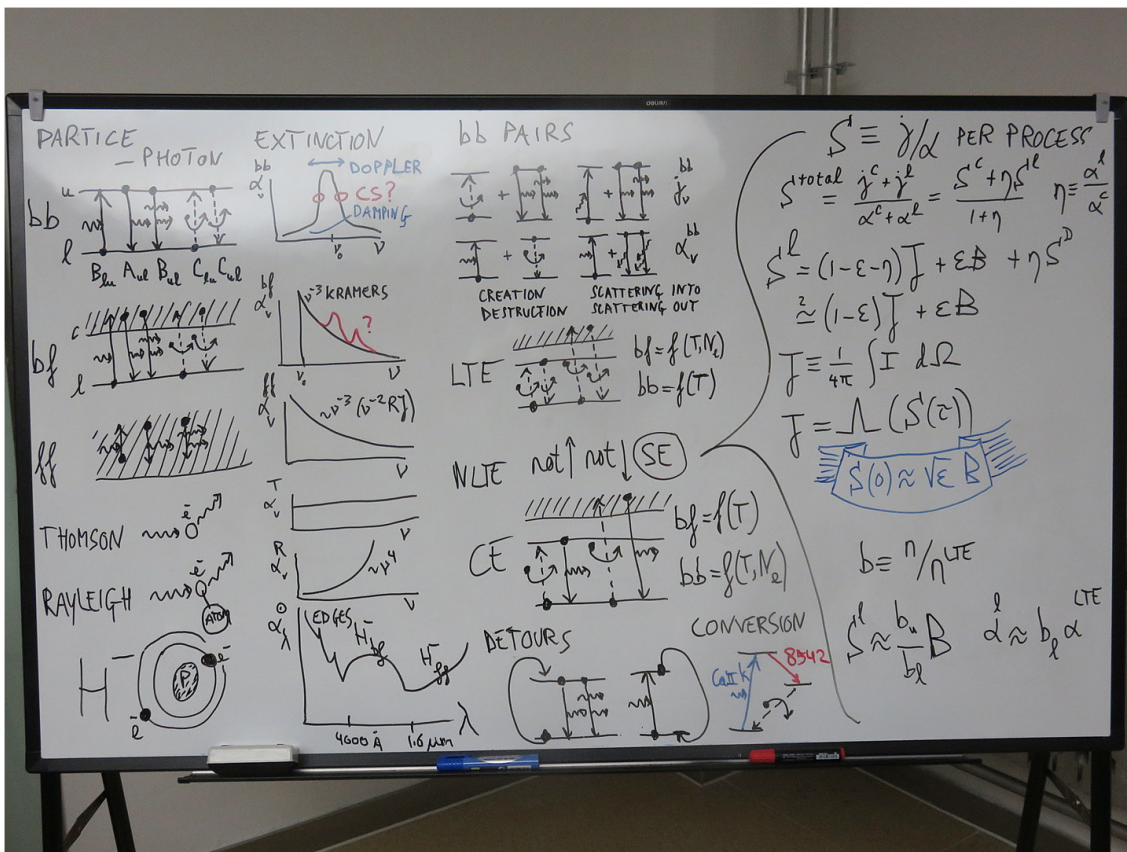 deli
PARTICE
– PHOTON
u
bb
l
B_lu A_ul B_ul C_lu C_ul
c
bf
l
ff
THOMSON e⁻
RAYLEIGH e⁻
ATOM
H⁻
P
e⁻
e⁻
EXTINCTION
α_ν^bb
DOPPLER
CS?
DAMPING
ν₀ ν
α_ν^bf
ν⁻³ KRAMERS
?
ν₀ ν
α_ν^ff
~ν⁻³ (ν⁻² RJ)
ν
α_ν^T
ν
α_ν^R
~ν⁴
ν
α_λ^O
EDGES
H⁻_bf
H⁻_ff
λ
4000 Å 1.6 μm
bb PAIRS
+ + j_ν^bb
+ + α_ν^bb
CREATION
DESTRUCTION
SCATTERING INTO
SCATTERING OUT
LTE
bf = f(T,N_e)
bb = f(T)
NLTE not↑ not↓ SE
CE
bf = f(T)
bb = f(T,N_e)
DETOURS
CONVERSION
CaII K
8542
S ≡ j/α PER PROCESS
S^total = (j^c + j^l)/(α^c + α^l) = (S^c + ηS^l)/(1+η) η ≡ α^l/α^c
S^l = (1-ε-η) J̅ + εB + ηS^D
≃? (1-ε) J̅ + εB
J̅ ≡ 1/4π ∫ I dΩ
J̅ = Λ (S(τ))
S(0) ≈ √ε B
b ≡ n/n^LTE
S^l ≈ b_u/b_l B α^l ≈ b_l α^LTE